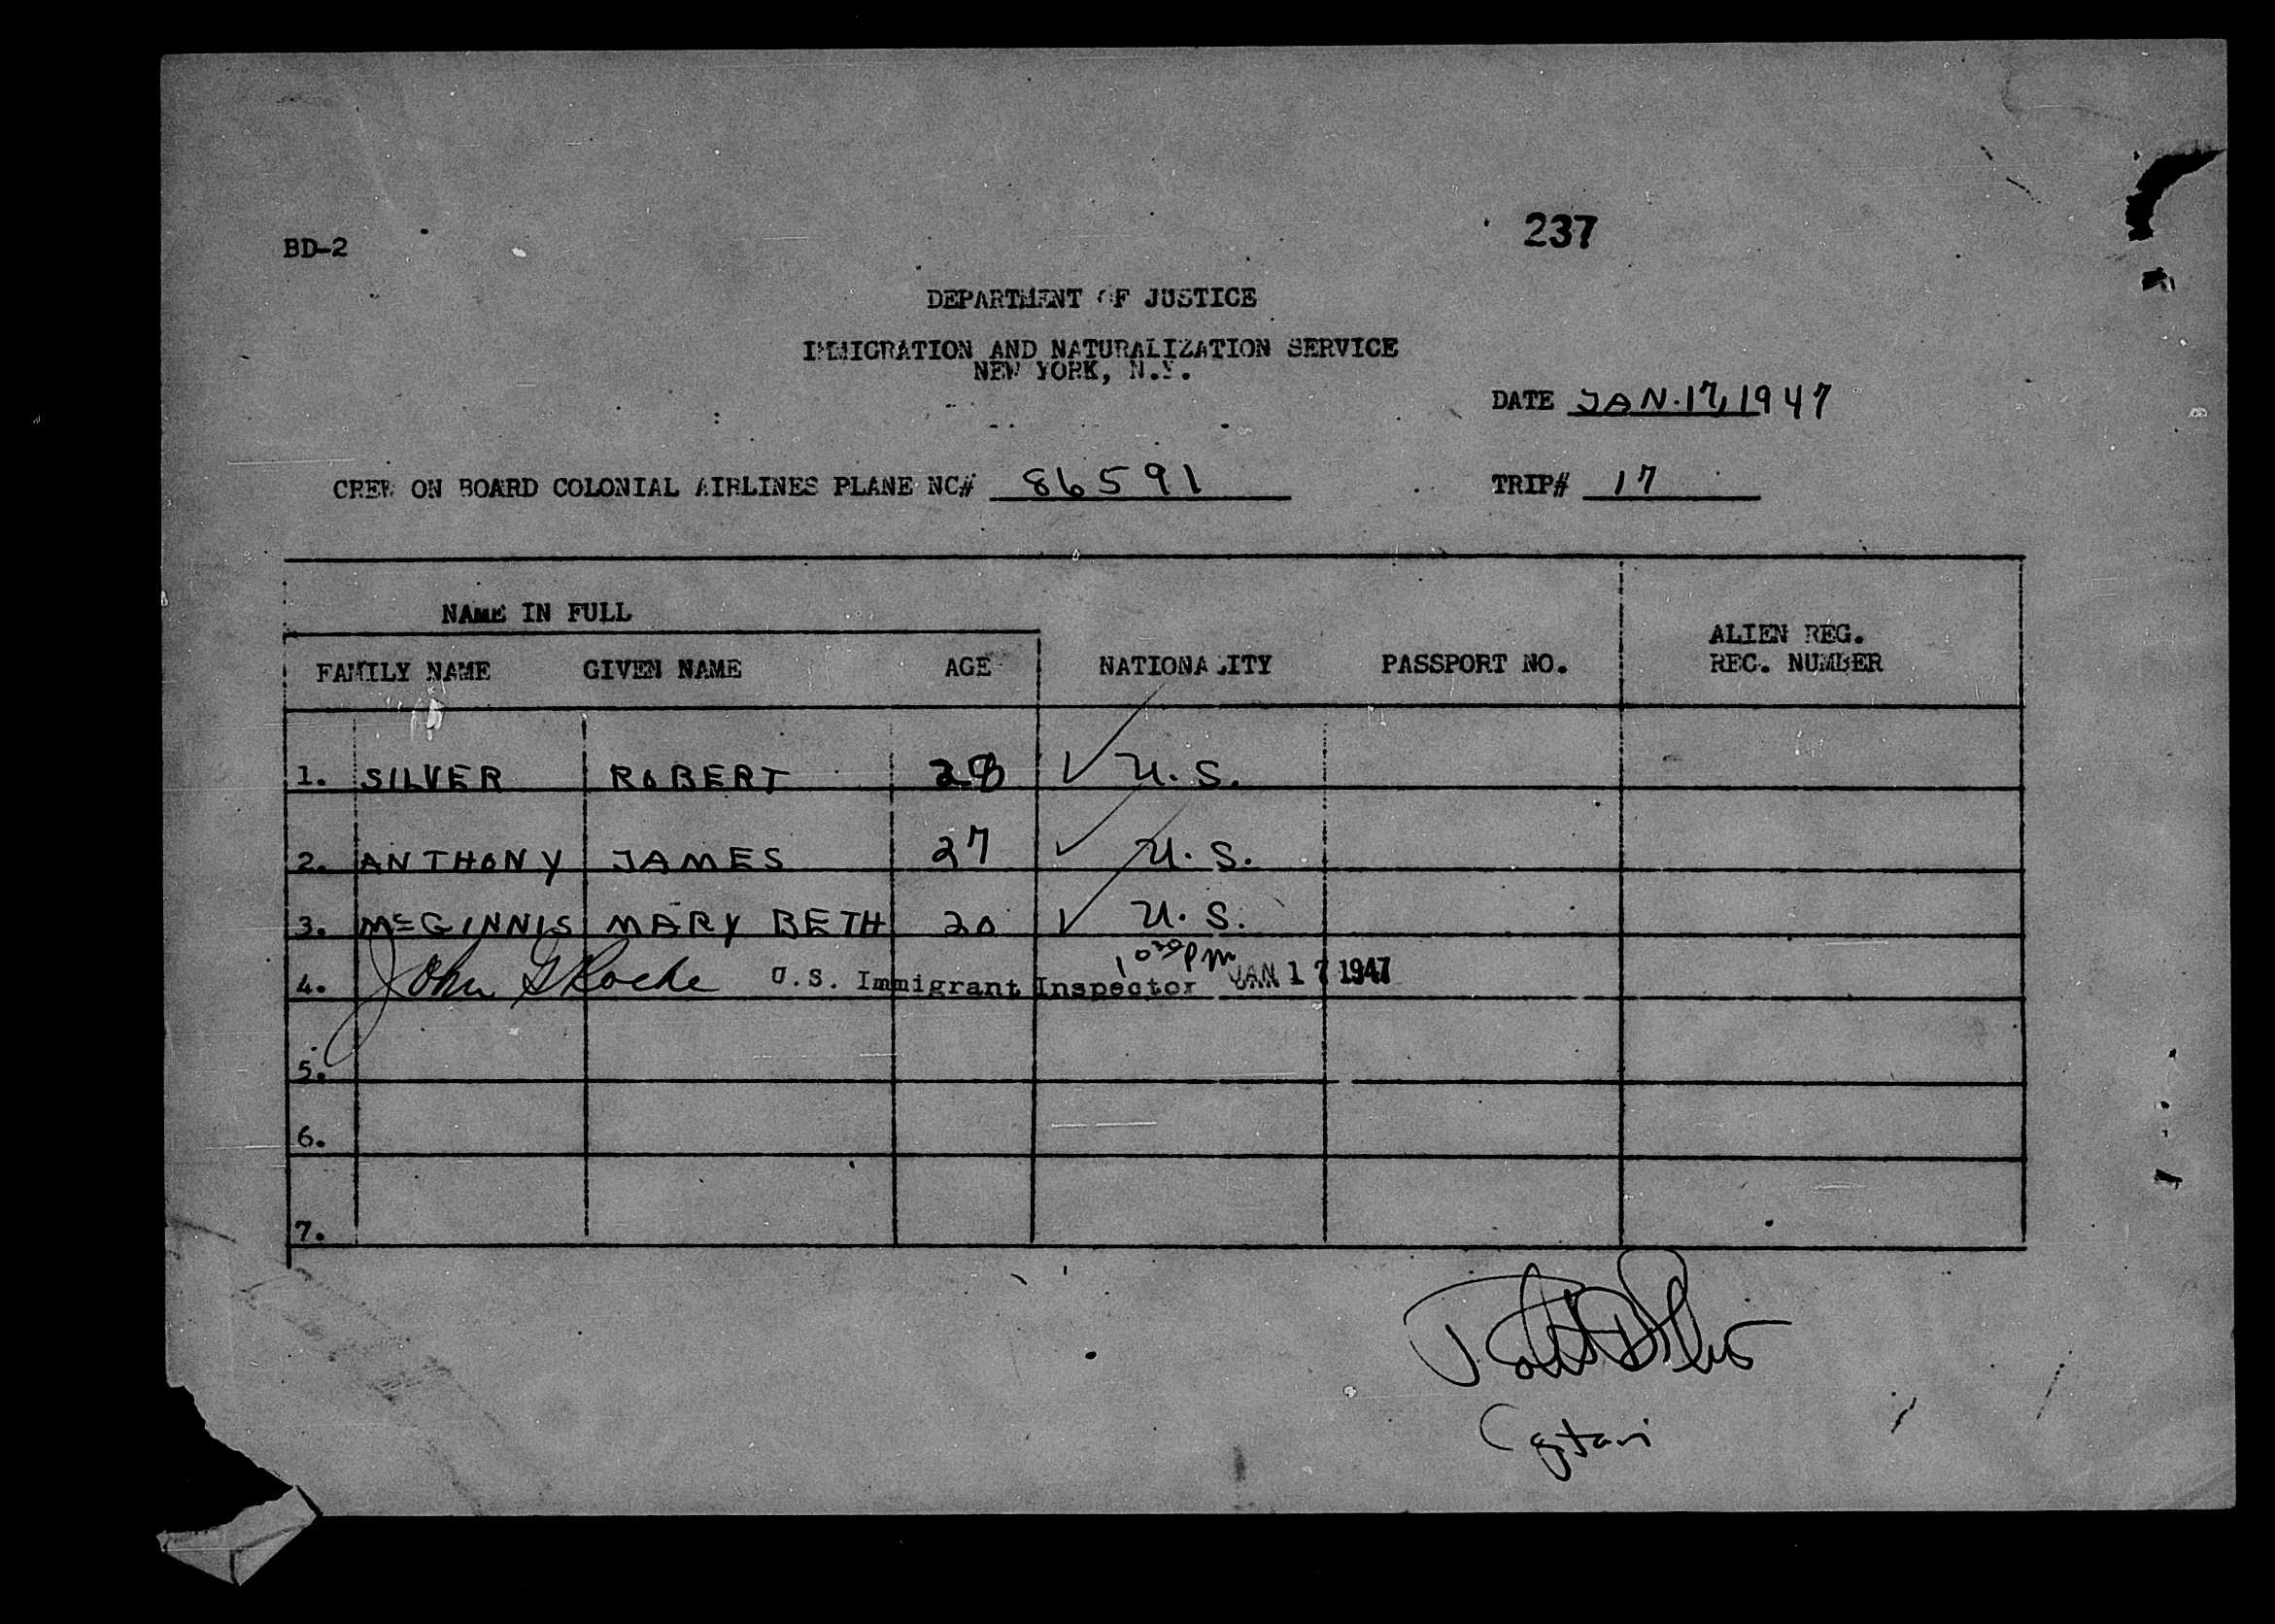 237
BD-2
DEPARTMENT OF JUSTICE
IMMIGRATION AND NATURALIZATION SERVICE
NEW YORK, N.Y.
DATE JAN. 17, 1947
CREW ON BOARD COLONIAL AIRLINES PLANE NC# 86591 TRIP# 17
NAME IN FULL
FAMILY NAME GIVEN NAME AGE NATIONALITY PASSPORT NO. ALIEN REG. REC. NUMBER
1. SILVER ROBERT 28 ✓ U.S.
2. ANTHONY JAMES 27 ✓ U.S.
3. McGINNIS MARY BETH 20 ✓ U.S.
1030 PM
4. John U.S. Immigrant Inspector JAN 17 1947
5.
6.
7.
Captain